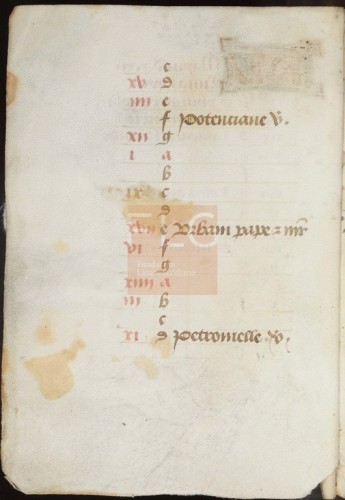 c
xv d
iiii e
f Potenciane v̄.
xii g
i a
b
ix c
d
xvii e Vrbani pape ⁊ mr̄
vi f
g
xiiii a
iii b
c
xi d Petronielle v̄.